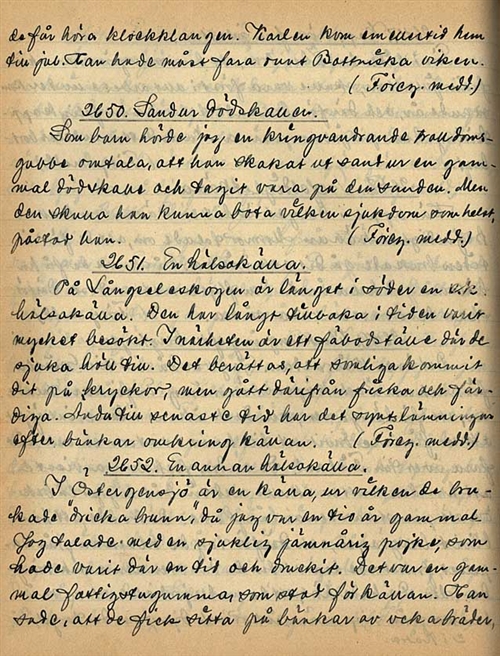 de får höra klockklangen. Karlen kom emellertid hem
till jul. Han hade måst fara runt Bottniska viken.
(Föreg. medd.)
2650. Sand ur dödskallen.
Som barn hörde jag en kringvandrande trolldoms-
gubbe omtala, att han skakat ut sand ur en gam-
mal dödskalle och tagit vara på den sanden. Men
den skulle han kunna bota vilken sjukdom som helst,
påstod han. (Föreg. medd.)
2651. En hälsokälla.
På Långseleskogen är längst i söder en s.k.
hälsokälla. Den har långt tillbaka i tiden varit
mycket besökt. I närheten är ett fäbodställe där de
sjuka höll till. Det berättas, att somliga kommit
dit på kryckor, men gått därifrån friska och fär-
diga. Ända till senaste tid har det synts lämningar
efter bänkar omkring källan. (Föreg. medd.)
2652. En annan hälsokälla.
I Östergensjö är en källa, ur vilken de bru-
kade "dricka brunn", då jag var en tio år gammal.
Jag talade med en sjuklig jämnårig pojke, som
hade varit där en tid och druckit. Det var en gam-
mal fattigstugumma, som stod för källan. Han
sade, att de fick sitta på bänkar av veka bräder,